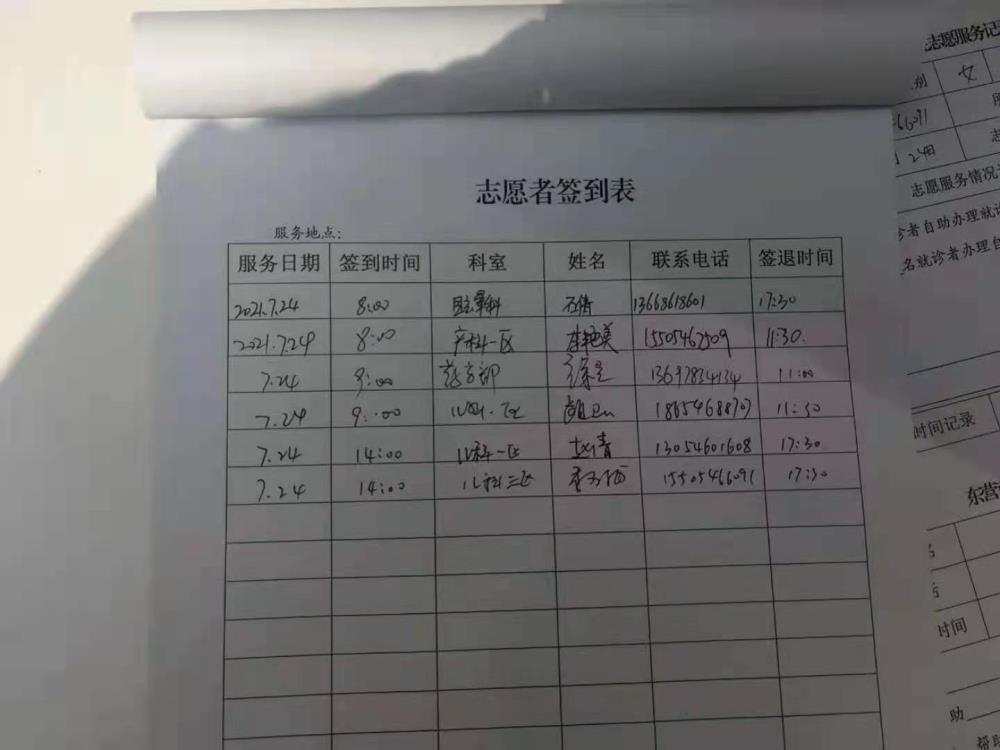 志愿者签到表
服务地点:
服务日期 签到时间 科室 姓名 联系电话 签退时间
2021.7.24 8:00 13668618601 17:30
2021.7.24 8:00 产科一区 李艳美 15505462509 11:30.
7.24 9:00 药方部 徐昱 13697834134 11:00
7.24 9:00 11:30
7.24 14:00 儿科一区 赵青 13054601608 17:30
7.24 14:00 儿科三区 15505466091 17:30
志愿服务记
别 女
66091
24日
志愿服务情况
诊者自助办理就诊
名就诊者办理自
时间记录
东营
名
时间
助
帮助